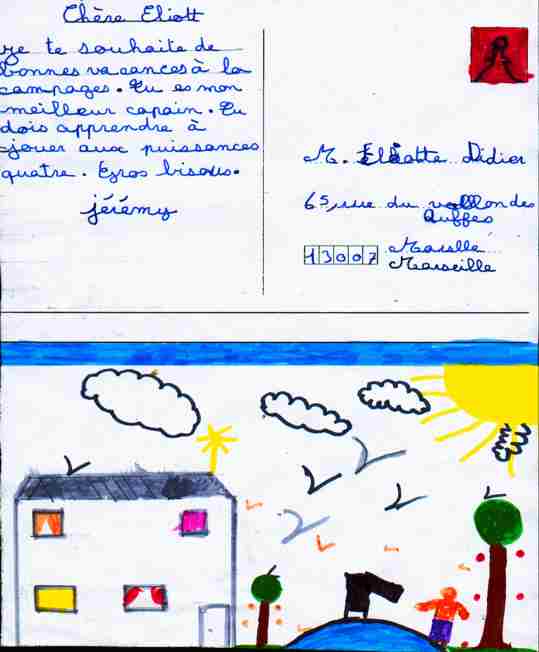 Chère Eliott
je te souhaite de
bonnes vacances à la
campages. Tu es mon
meilleur copain. Tu
dois apprendre à
jouer aux puissances
quatre. Gros bisous.
jérémy
M. Didier
65, rue du vallon des
Auffes
13007
Marseille